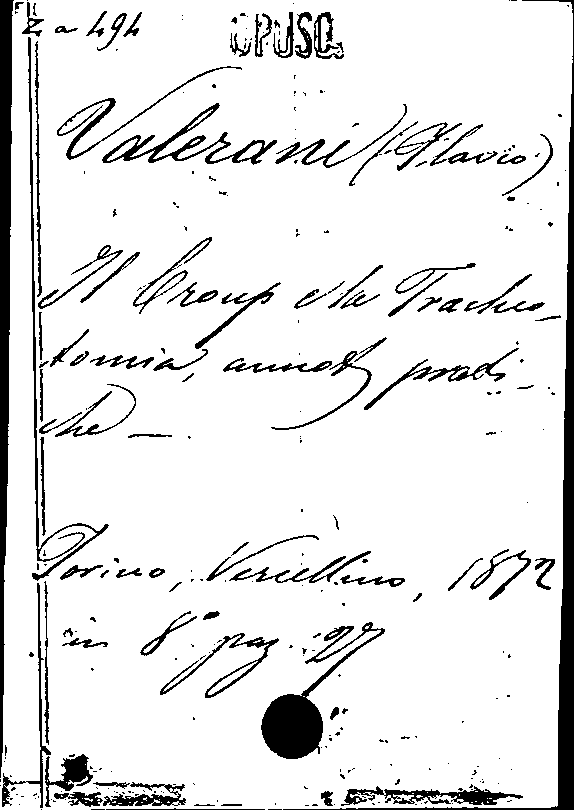 Z a 494
OPUSC.
Valerani (Flavio)
Il Croup e la Tracheo-
tomia, annot prati-
che —
Torino, Vercellino, 1872
in 8° pag. 27